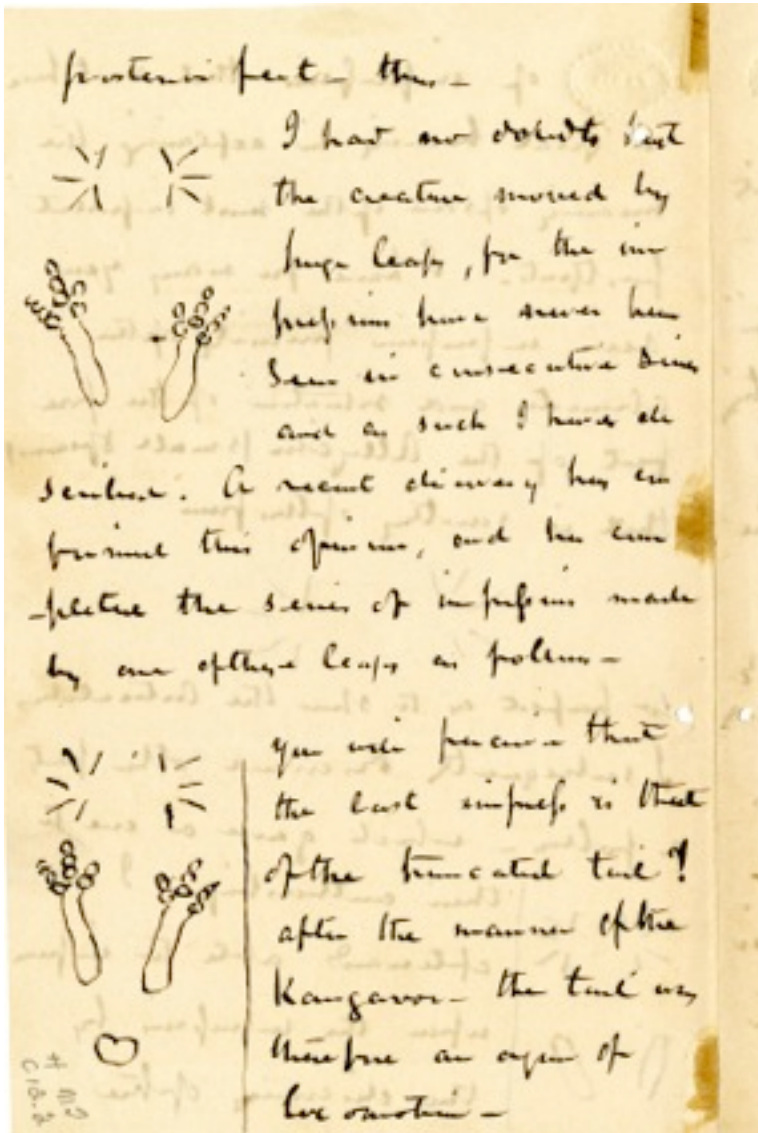 posterior feet – thus –
I had no doubts but
the creature moved by
huge leaps, for the im
pressions have never been
seen in consecutive lines
and as such I have de
scribed. A recent discovery has con
firmed this opinion, and has com
-pleted the series of impressions made
by one of these leaps as follows –
you will perceive that
the last impress is that
of the truncated tail!
after the manner of the
Kangaroo – the tail was
therefore an organ of
locomotion –